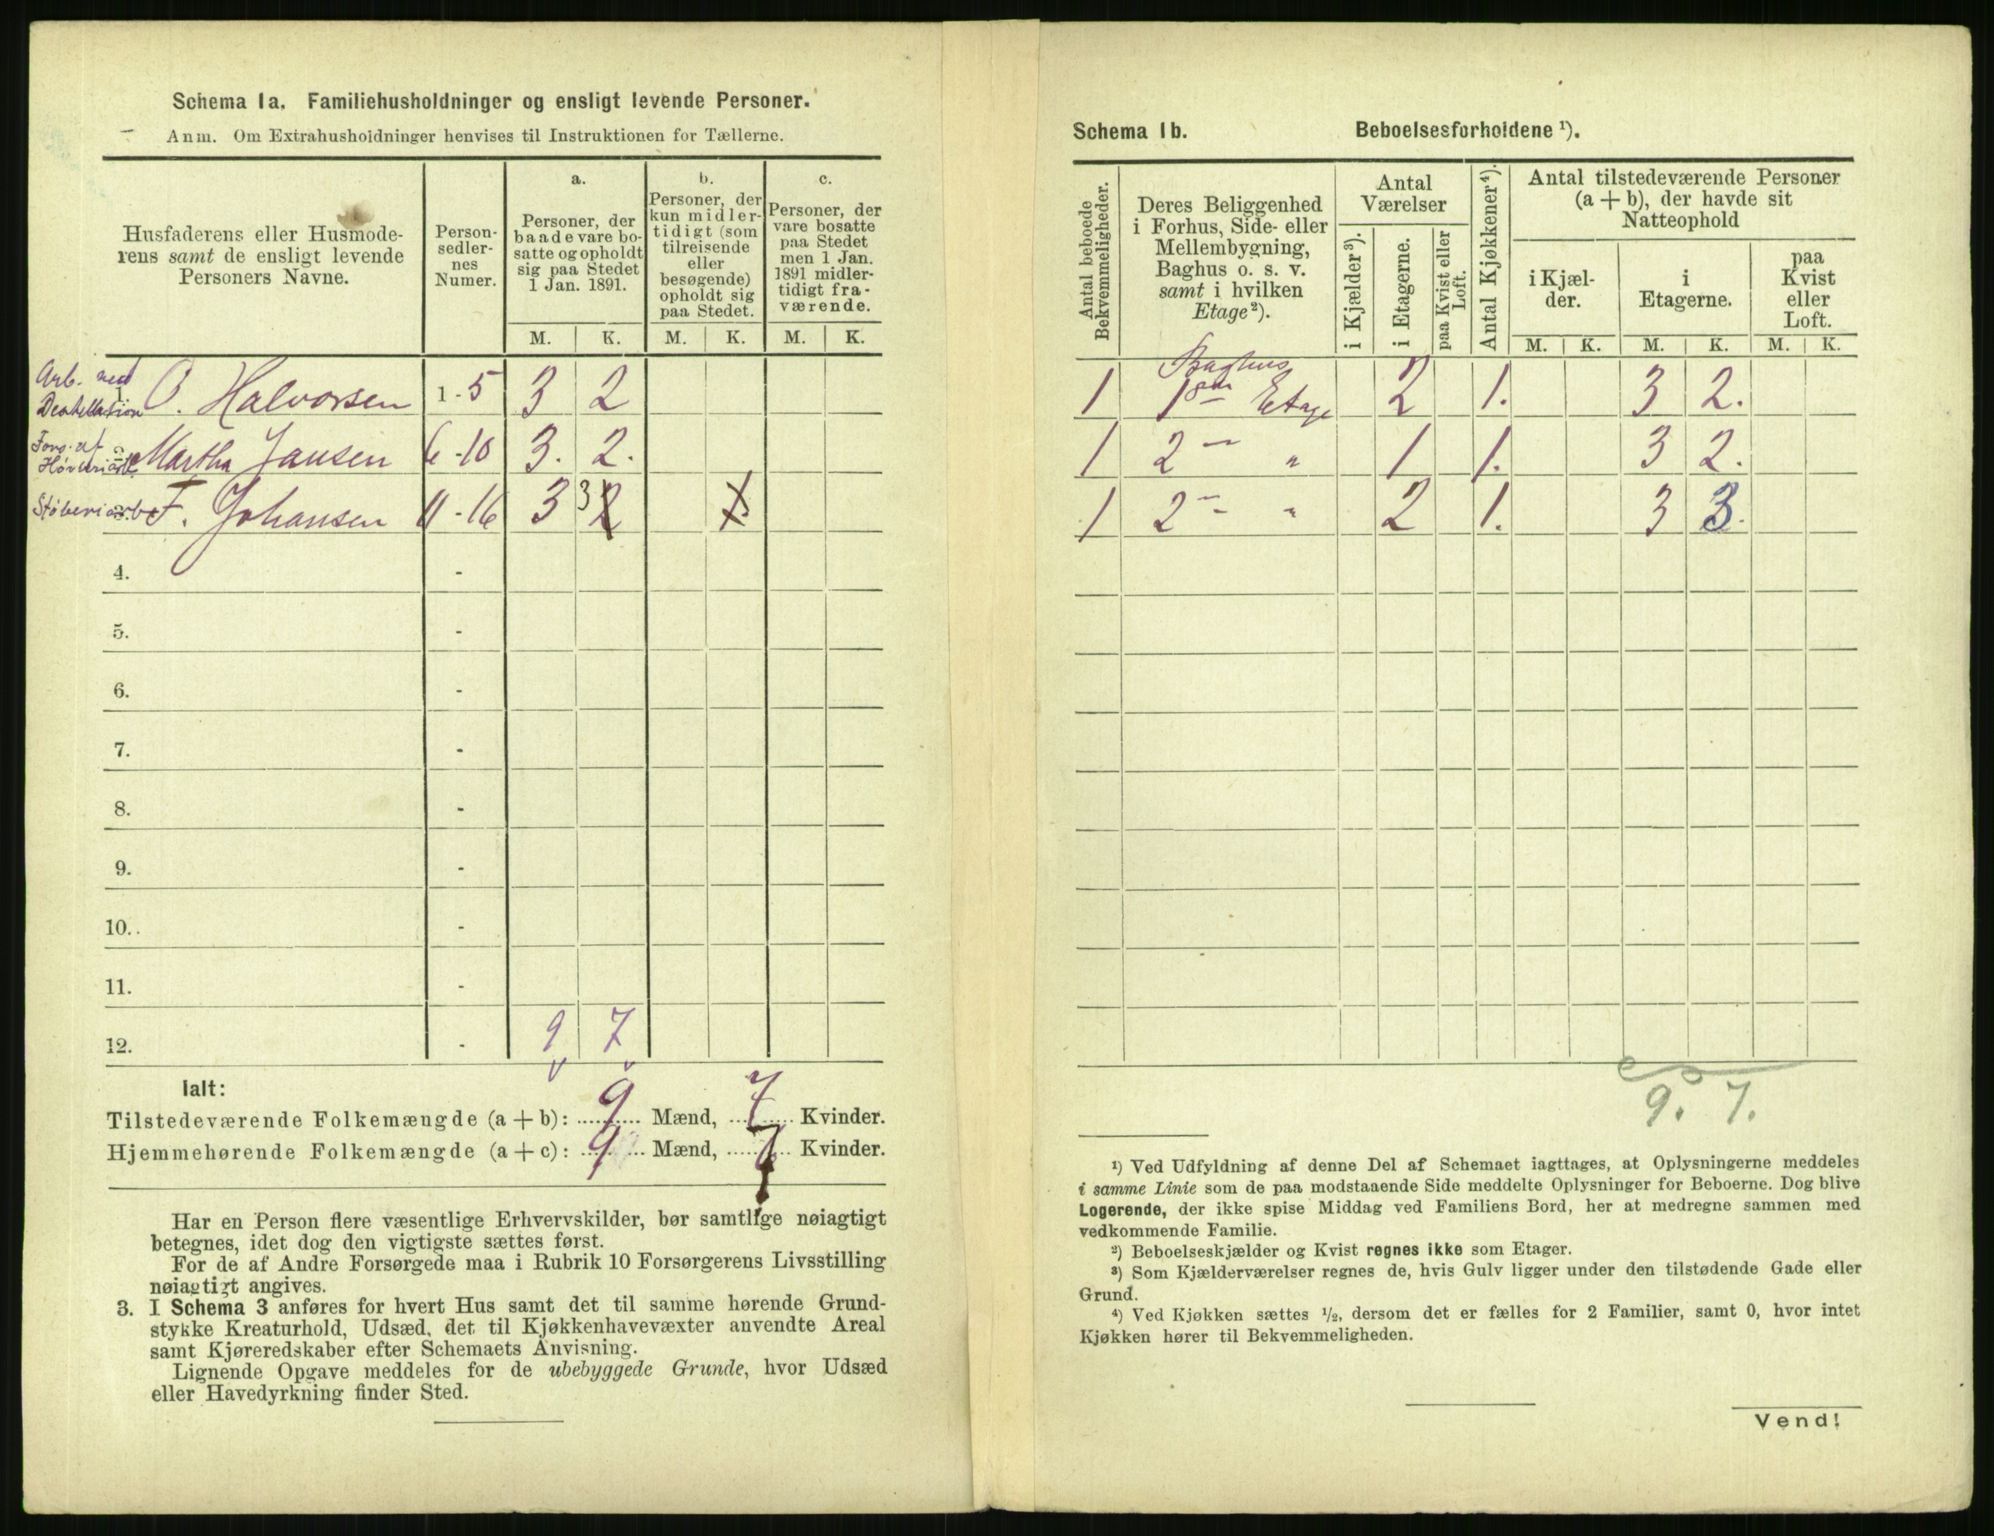 Schema 1a. Familiehusholdninger og ensligt levende Personer.
Anm. Om Extrahusholdninger henvises til Instruktionen for Tællerne.
Husfaderens eller Husmode-
rens samt de ensligt levende
Personers Navne.
Person-
sedler-
nes
Numer.
a.
Personer, der
baade vare bo-
satte og opholdt
sig paa Stedet
1 Jan. 1891.
b.
Personer, der
kun midler-
tidigt (som
tilreisende
eller
besøgende)
opholdt sig
paa Stedet.
c.
Personer, der
vare bosatte
paa Stedet
men 1 Jan.
1891 midler-
tidigt fra-
værende.
M. K. M. K. M. K.
Arb. ved
1. O. Halvorsen 1-5 3 2
Fors. af
2. Martha Jansen 6-10 3. 2.
Støberiarb. F. Johansen 11-16 3 3 2
4. -
5. -
6. -
7. -
8. -
9. -
10. -
11. -
12. - 9 7
Ialt:
Tilstedeværende Folkemængde (a + b): 9 Mænd, 7 Kvinder.
Hjemmehørende Folkemængde (a + c): 9 Mænd, 7 Kvinder.
Har en Person flere væsentlige Erhvervskilder, bør samtlige nøiagtigt
betegnes, idet dog den vigtigste sættes først.
For de af Andre Forsørgede maa i Rubrik 10 Forsørgerens Livsstilling
nøiagtigt angives.
3. I Schema 3 anføres for hvert Hus samt det til samme hørende Grund-
stykke Kreaturhold, Udsæd, det til Kjøkkenhavevæxter anvendte Areal
samt Kjøreredskaber efter Schemaets Anvisning.
Lignende Opgave meddeles for de ubebyggede Grunde, hvor Udsæd
eller Havedyrkning finder Sted.
Schema 1b. Beboelsesforholdene ¹).
Antal beboede
Bekvemmeligheder.
Deres Beliggenhed
i Forhus, Side- eller
Mellembygning,
Baghus o. s. v.
samt i hvilken
Etage²).
Antal
Værelser
i Kjælder³).
i Etagerne.
paa Kvist eller
Loft.
Antal Kjøkkener⁴).
Antal tilstedeværende Personer
(a + b), der havde sit
Natteophold
i Kjæl-
der.
i
Etagerne.
paa
Kvist
eller
Loft.
M. K. M. K. M. K.
Baghus
1 1ste Etage 2 1. 3 2.
1 2 — " 1 1. 3 2.
1 2 — " 2 1. 3 3.
9. 7.
¹) Ved Udfyldning af denne Del af Schemaet iagttages, at Oplysningerne meddeles
i samme Linie som de paa modstaaende Side meddelte Oplysninger for Beboerne. Dog blive
Logerende, der ikke spise Middag ved Familiens Bord, her at medregne sammen med
vedkommende Familie.
²) Beboelseskjælder og Kvist regnes ikke som Etager.
³) Som Kjælderværelser regnes de, hvis Gulv ligger under den tilstødende Gade eller
Grund.
⁴) Ved Kjøkken sættes ½, dersom det er fælles for 2 Familier, samt 0, hvor intet
Kjøkken hører til Bekvemmeligheden.
Vend!